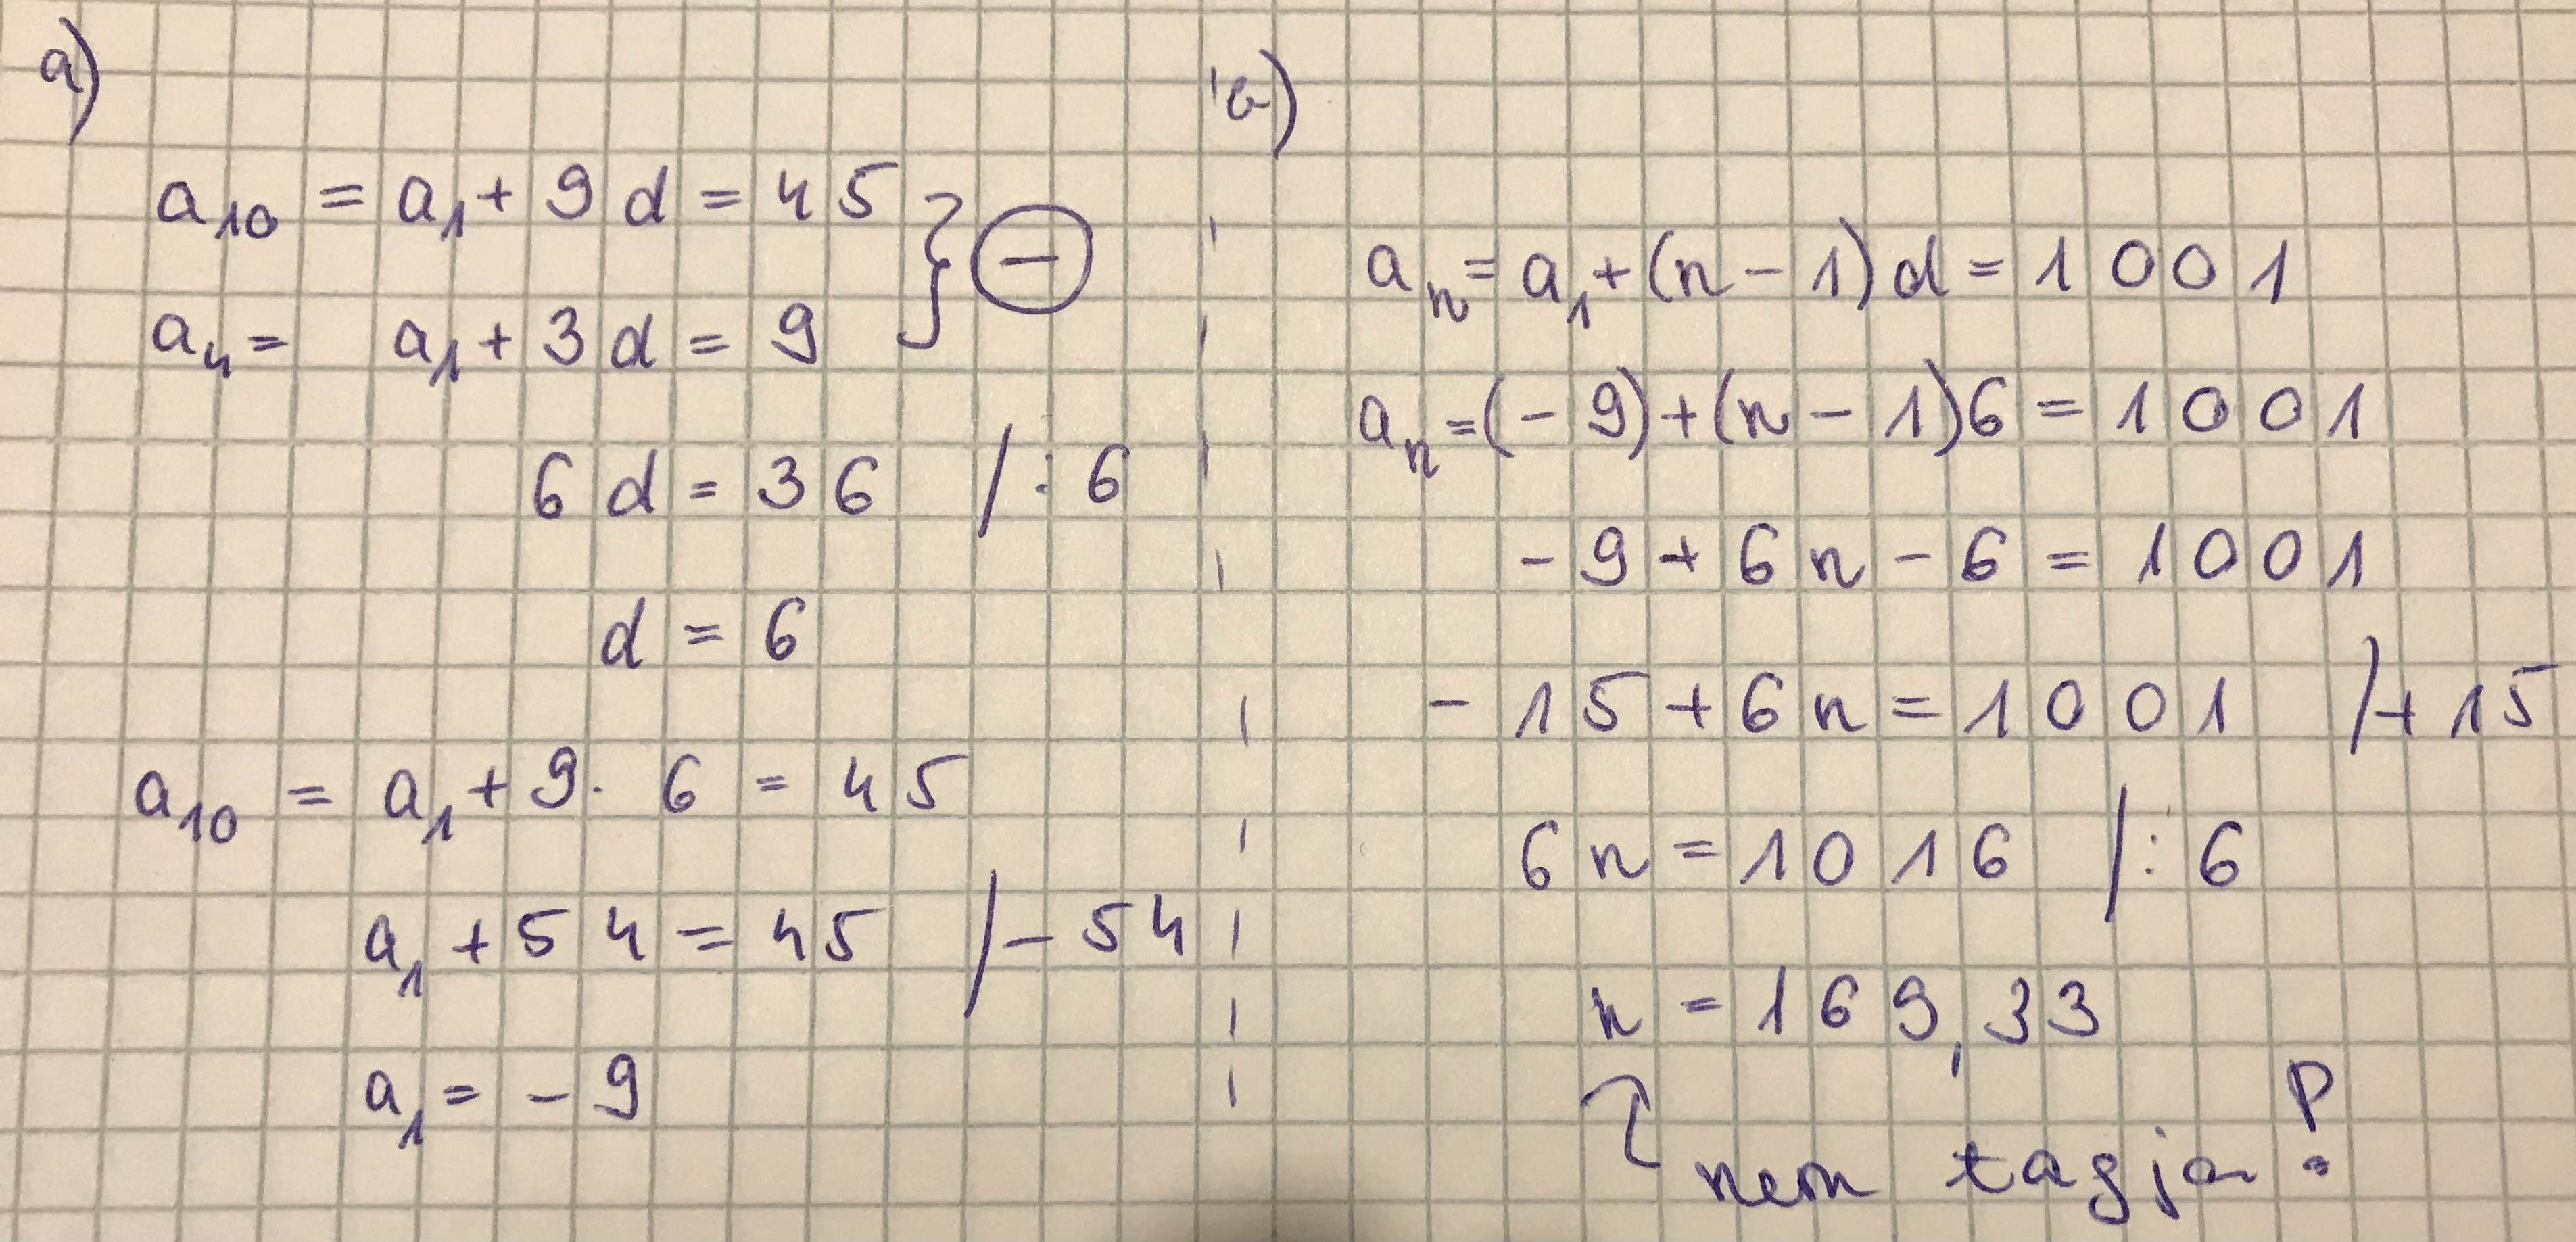 a)
a₁₀ = a₁ + 9d = 45
a₄ = a₁ + 3d = 9
} ⊖
6d = 36 /:6
d = 6
a₁₀ = a₁ + 9·6 = 45
a₁ + 54 = 45 /-54
a₁ = -9
b)
aₙ = a₁ + (n-1)d = 1001
aₙ = (-9) + (n-1)6 = 1001
-9 + 6n - 6 = 1001
-15 + 6n = 1001 /+15
6n = 1016 /:6
n = 169,33
nem tagja!